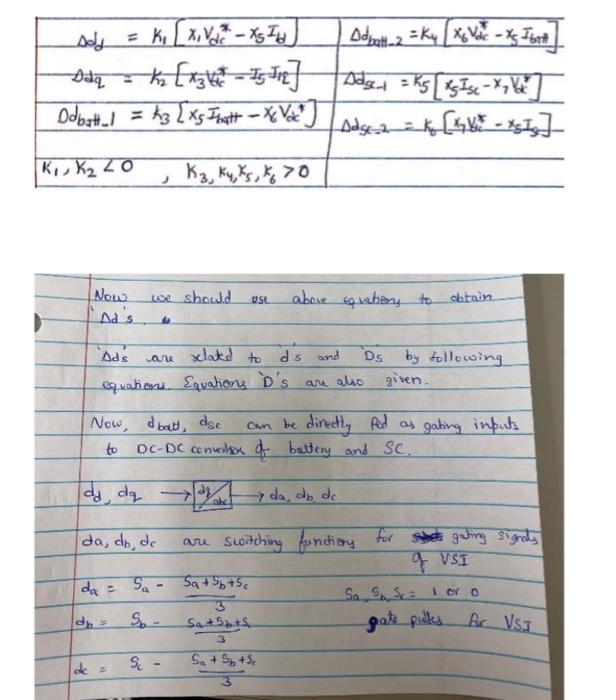 Δdd = K₁ [x₁Vdc* - x₅Id]
Δdq = K₂ [x₃Vdc* - I₅ I1q]
Δdbatt_1 = K₃ [x₅ Ibatt - x₆Vdc*]
K₁, K₂ < 0 , K₃, K₄, K₅, K₆ > 0
Δdbatt_2 = K₄ [x₆Vdc* - x₅ Ibatt]
Δdsc_1 = K₅ [x₅Isc - x₇Vdc*]
Δdsc_2 = K₆ [x₇Vdc* - x₅Is]
Now we should use above equations to obtain
'Δd's.
'Δd's are related to d's and 'D's by following
equations. Equations 'D's are also given.
Now, dbatt, dsc can be directly fed as gating inputs
to DC-DC converter of battery and SC.
dd, dq → dq/abc → da, db, dc
da, db, dc are switching functions for gating signals
of VSI
da = Sa - (Sa + Sb + Sc)/3
Sa, Sb, Sc = 1 or 0
db = Sb - (Sa + Sb + Sc)/3
gate pulses for VSI
dc = Sc - (Sa + Sb + Sc)/3